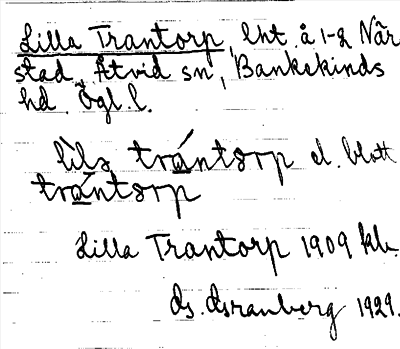 Lilla Trantorp, lht. å 1-2 När
stad, Åtvid sn, Bankekinds
hd. Ögl. l.
lìls trántorp el. blott
trántorp
Lilla Trantorp 1909 kb.
Ds. Dsranberg 1929.